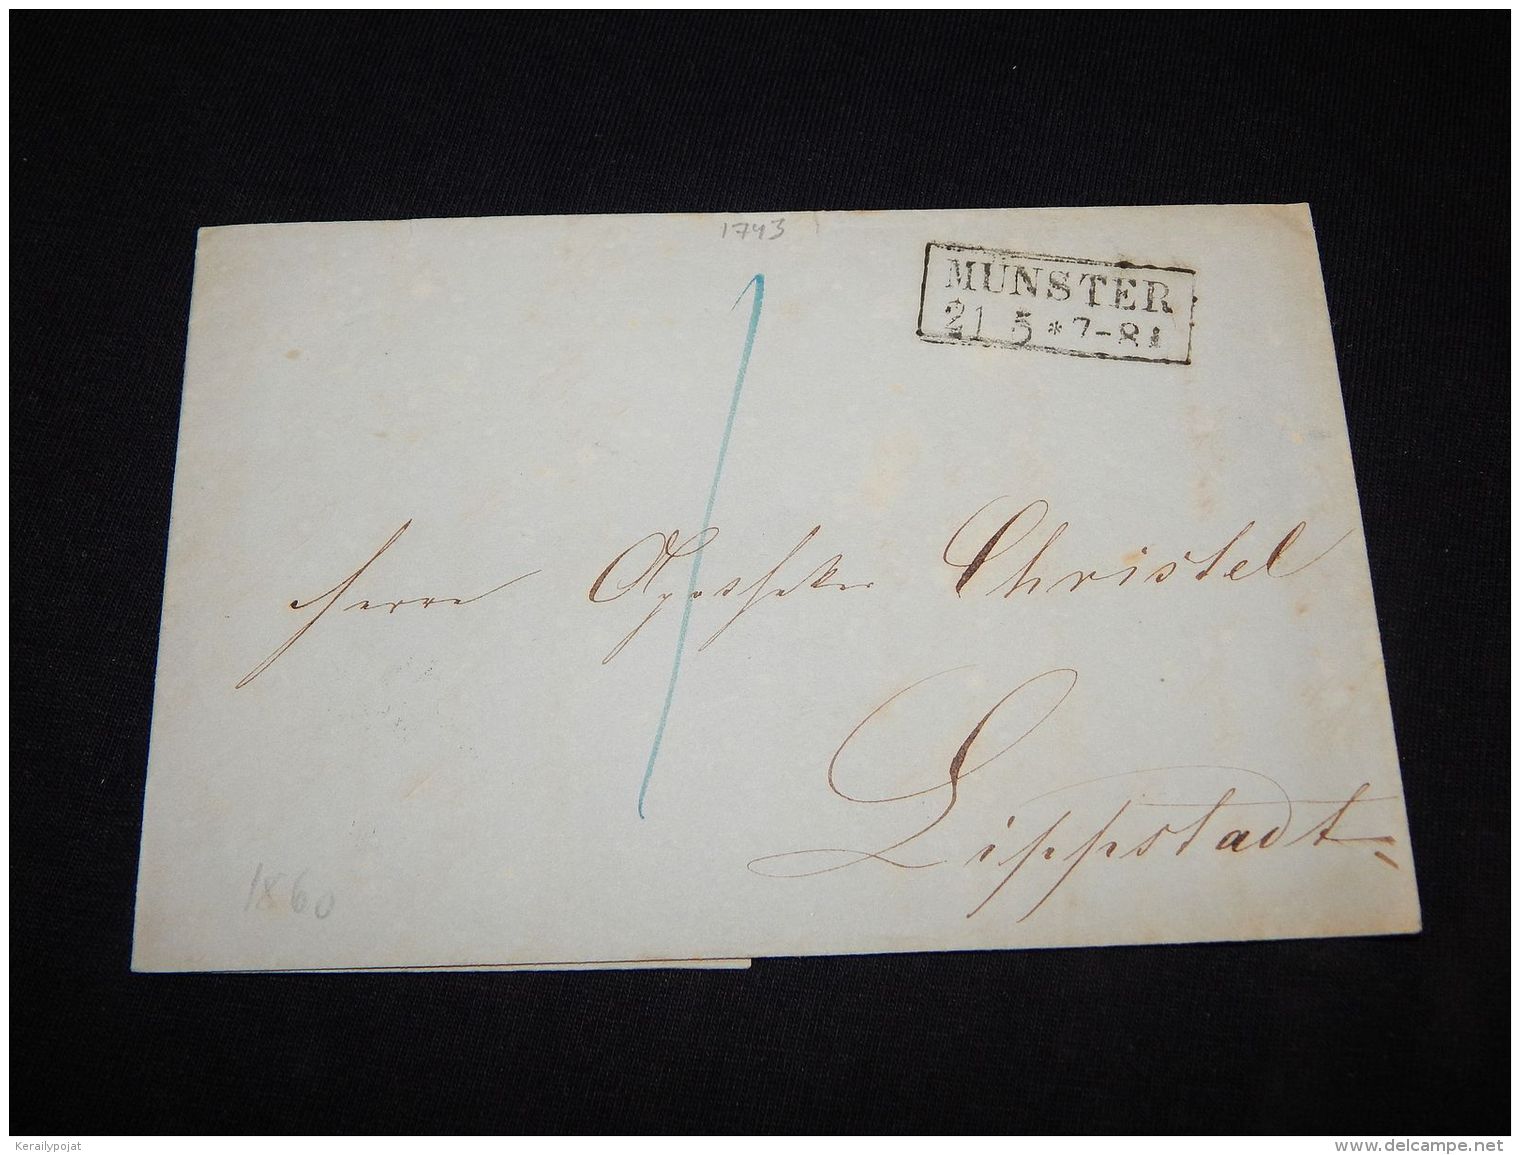 1743
MÜNSTER
21 5 * 7-8
1
Herrn Apotheker Christel
Lippstadt
1860
Kerailypojat
www.delcampe.net